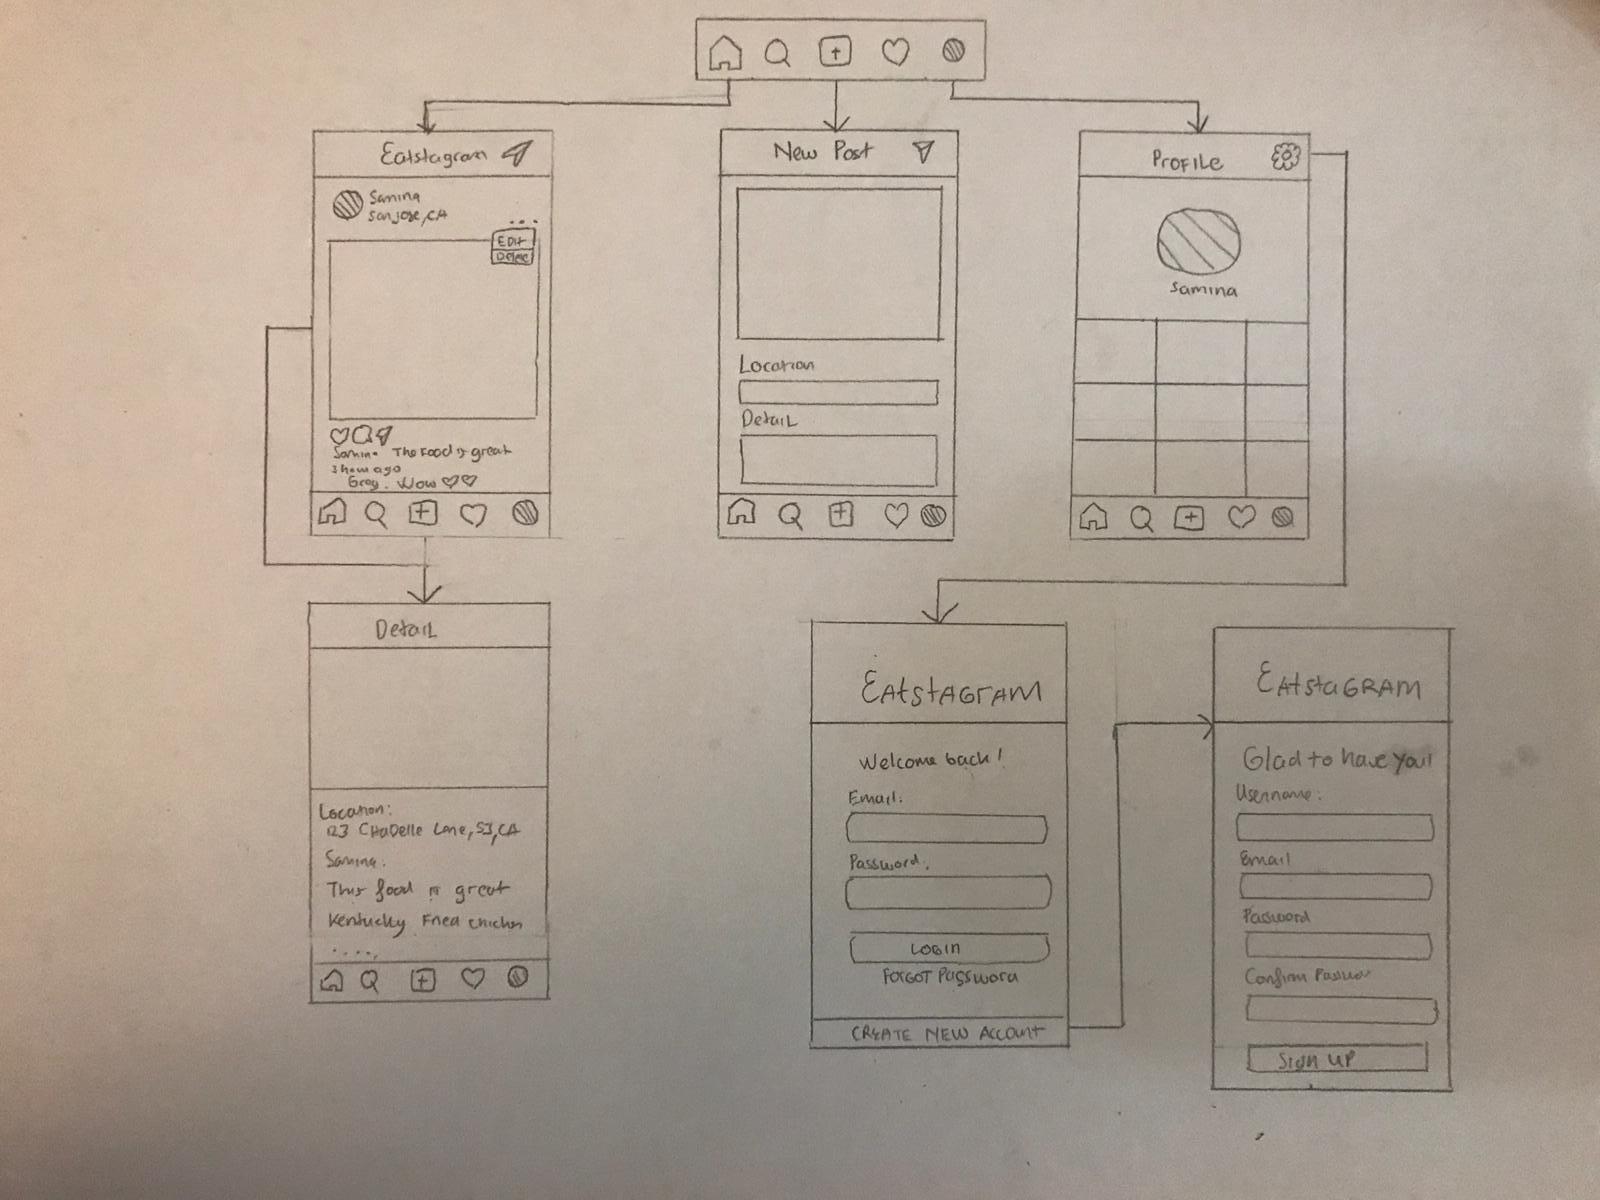 Eatstagram
Samina
San Jose, CA
...
Edit
Delete
Samina The food is great
3 hour ago
Greg. Wow
New Post
Location
Detail
Profile
Samina
Detail
Location:
123 Citadelle Lane, SJ, CA
Samina:
This food is great
Kentucky Fried chicken
.....
EATSTAGRAM
Welcome back!
Email:
Password:
LOGIN
FORGOT Password
CREATE NEW ACCOUNT
EATSTAGRAM
Glad to have you!
Username:
Email
Password
Confirm
Sign UP